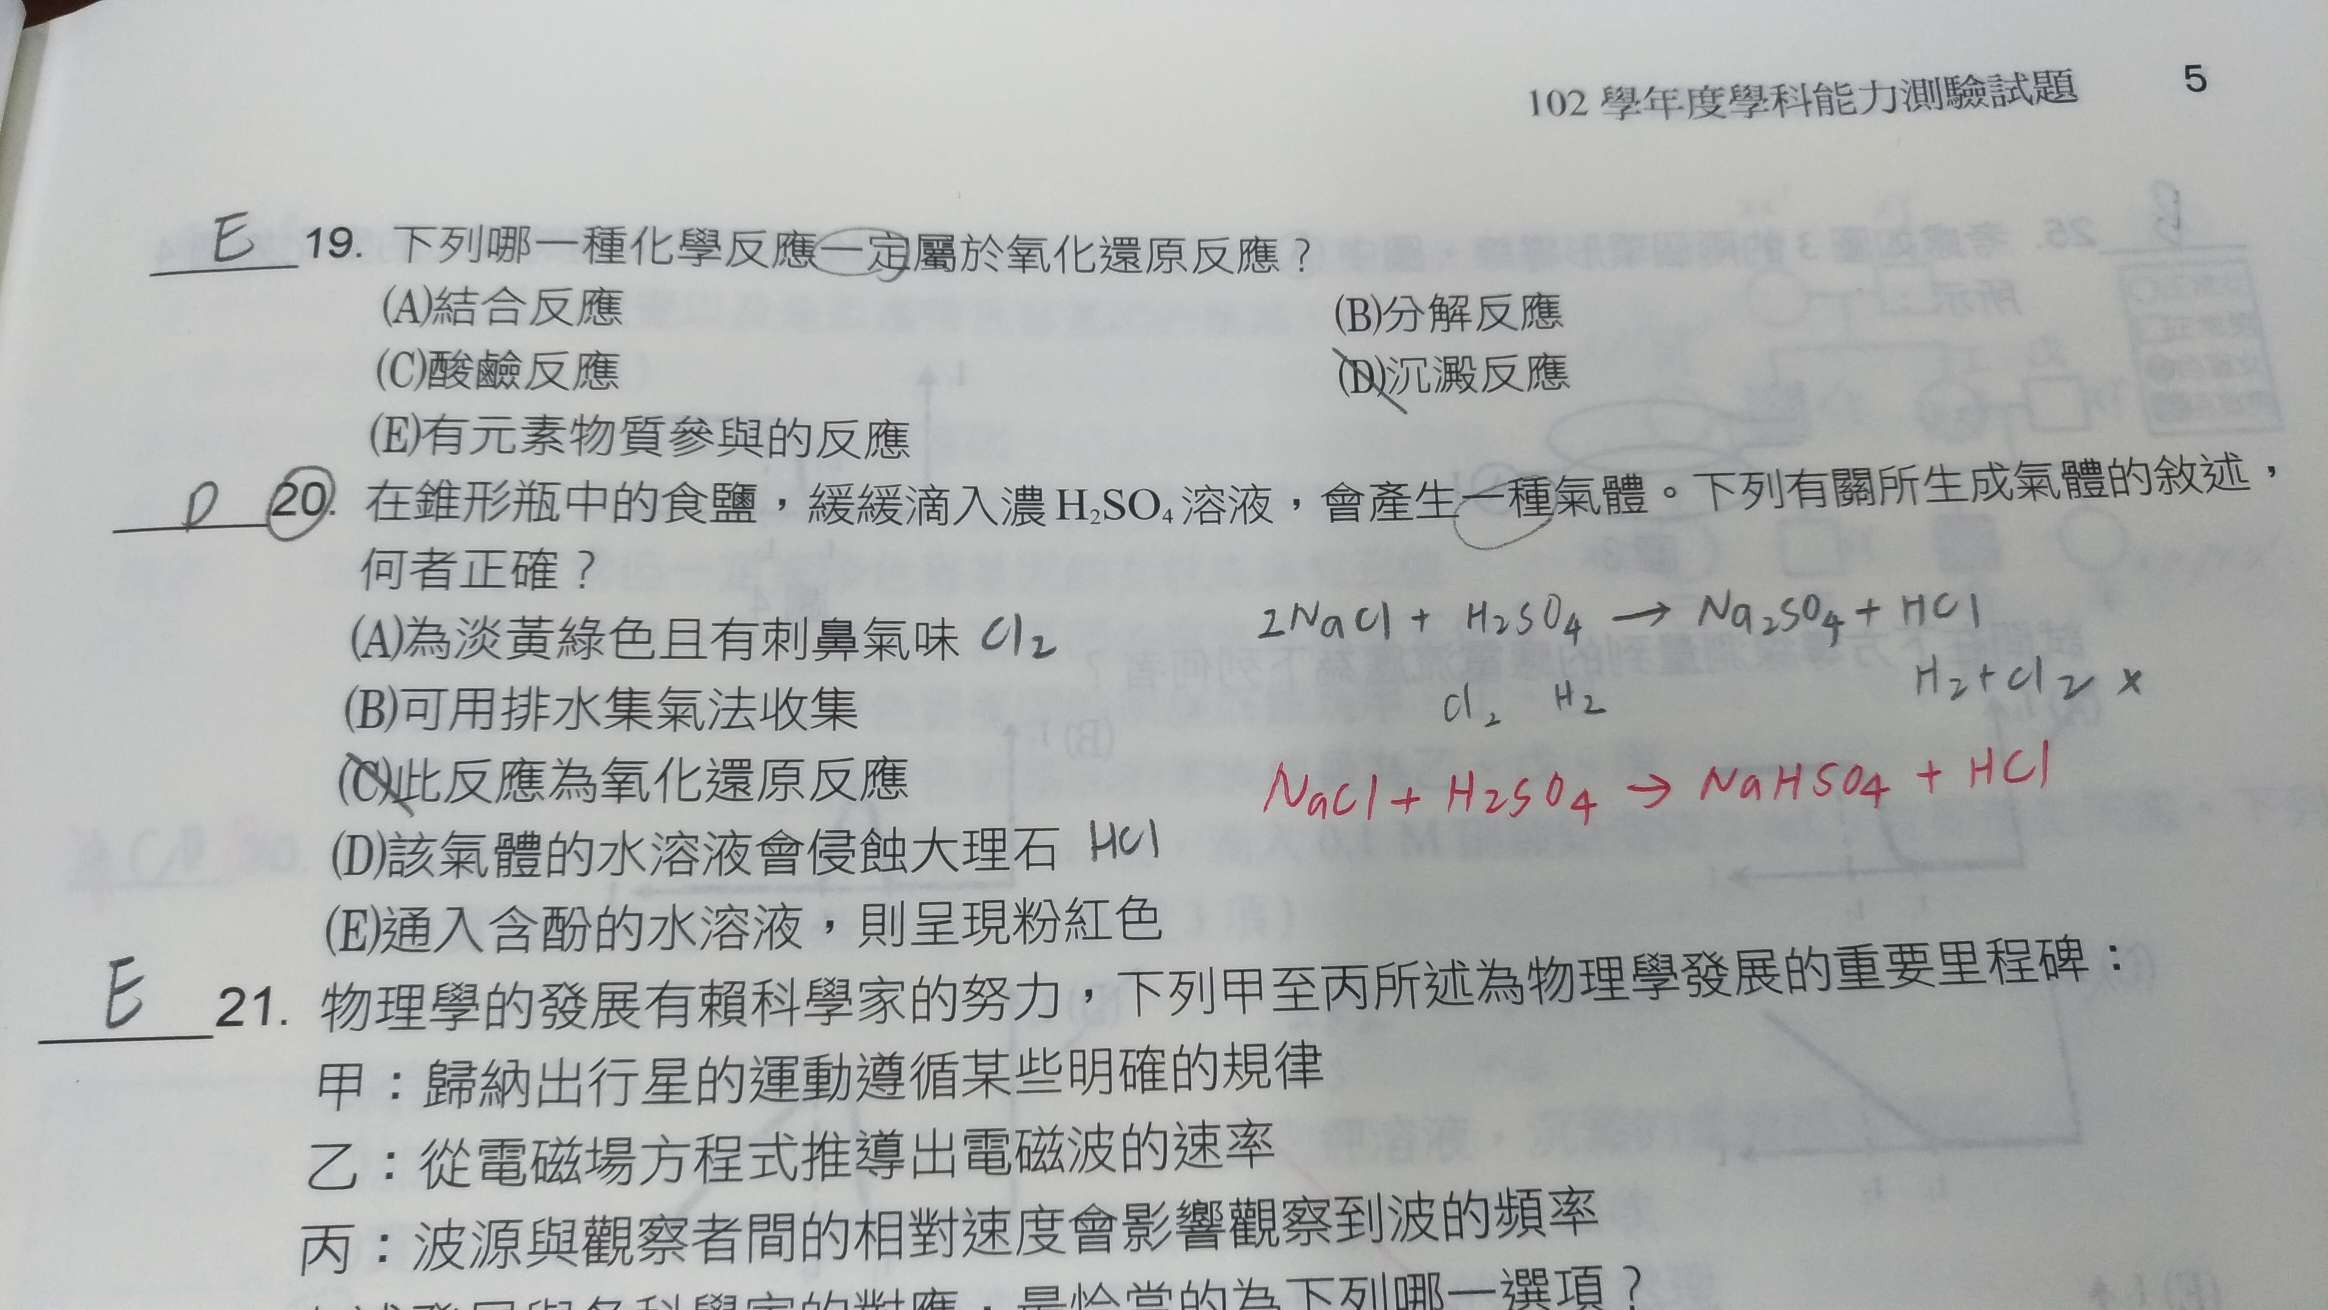 102 學年度學科能力測驗試題 5
E 19. 下列哪一種化學反應一定屬於氧化還原反應？
(A)結合反應 (B)分解反應
(C)酸鹼反應 (D)沉澱反應
(E)有元素物質參與的反應
D 20. 在錐形瓶中的食鹽，緩緩滴入濃 H₂SO₄ 溶液，會產生一種氣體。下列有關所生成氣體的敘述，
何者正確？
(A)為淡黃綠色且有刺鼻氣味 Cl₂
2NaCl + H₂SO₄ → Na₂SO₄ + HCl
Cl₂ H₂ H₂+Cl₂ ×
(B)可用排水集氣法收集
(C)此反應為氧化還原反應
NaCl + H₂SO₄ → NaHSO₄ + HCl
(D)該氣體的水溶液會侵蝕大理石 HCl
(E)通入含酚的水溶液，則呈現粉紅色
E 21. 物理學的發展有賴科學家的努力，下列甲至丙所述為物理學發展的重要里程碑：
甲：歸納出行星的運動遵循某些明確的規律
乙：從電磁場方程式推導出電磁波的速率
丙：波源與觀察者間的相對速度會影響觀察到波的頻率
學家的對應，最恰當的為下列哪一選項？